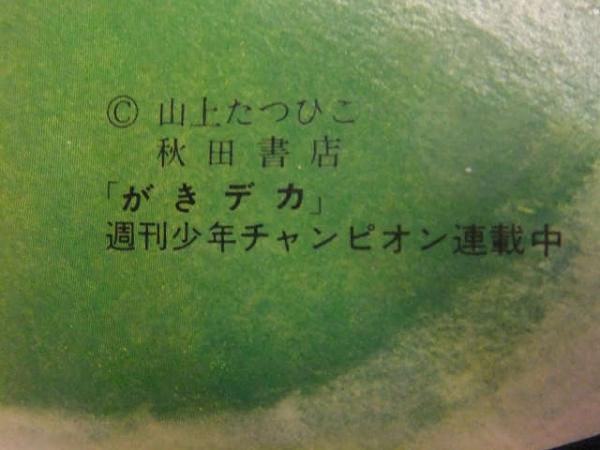 © 山上たつひこ
秋田書店
「がきデカ」
週刊少年チャンピオン連載中